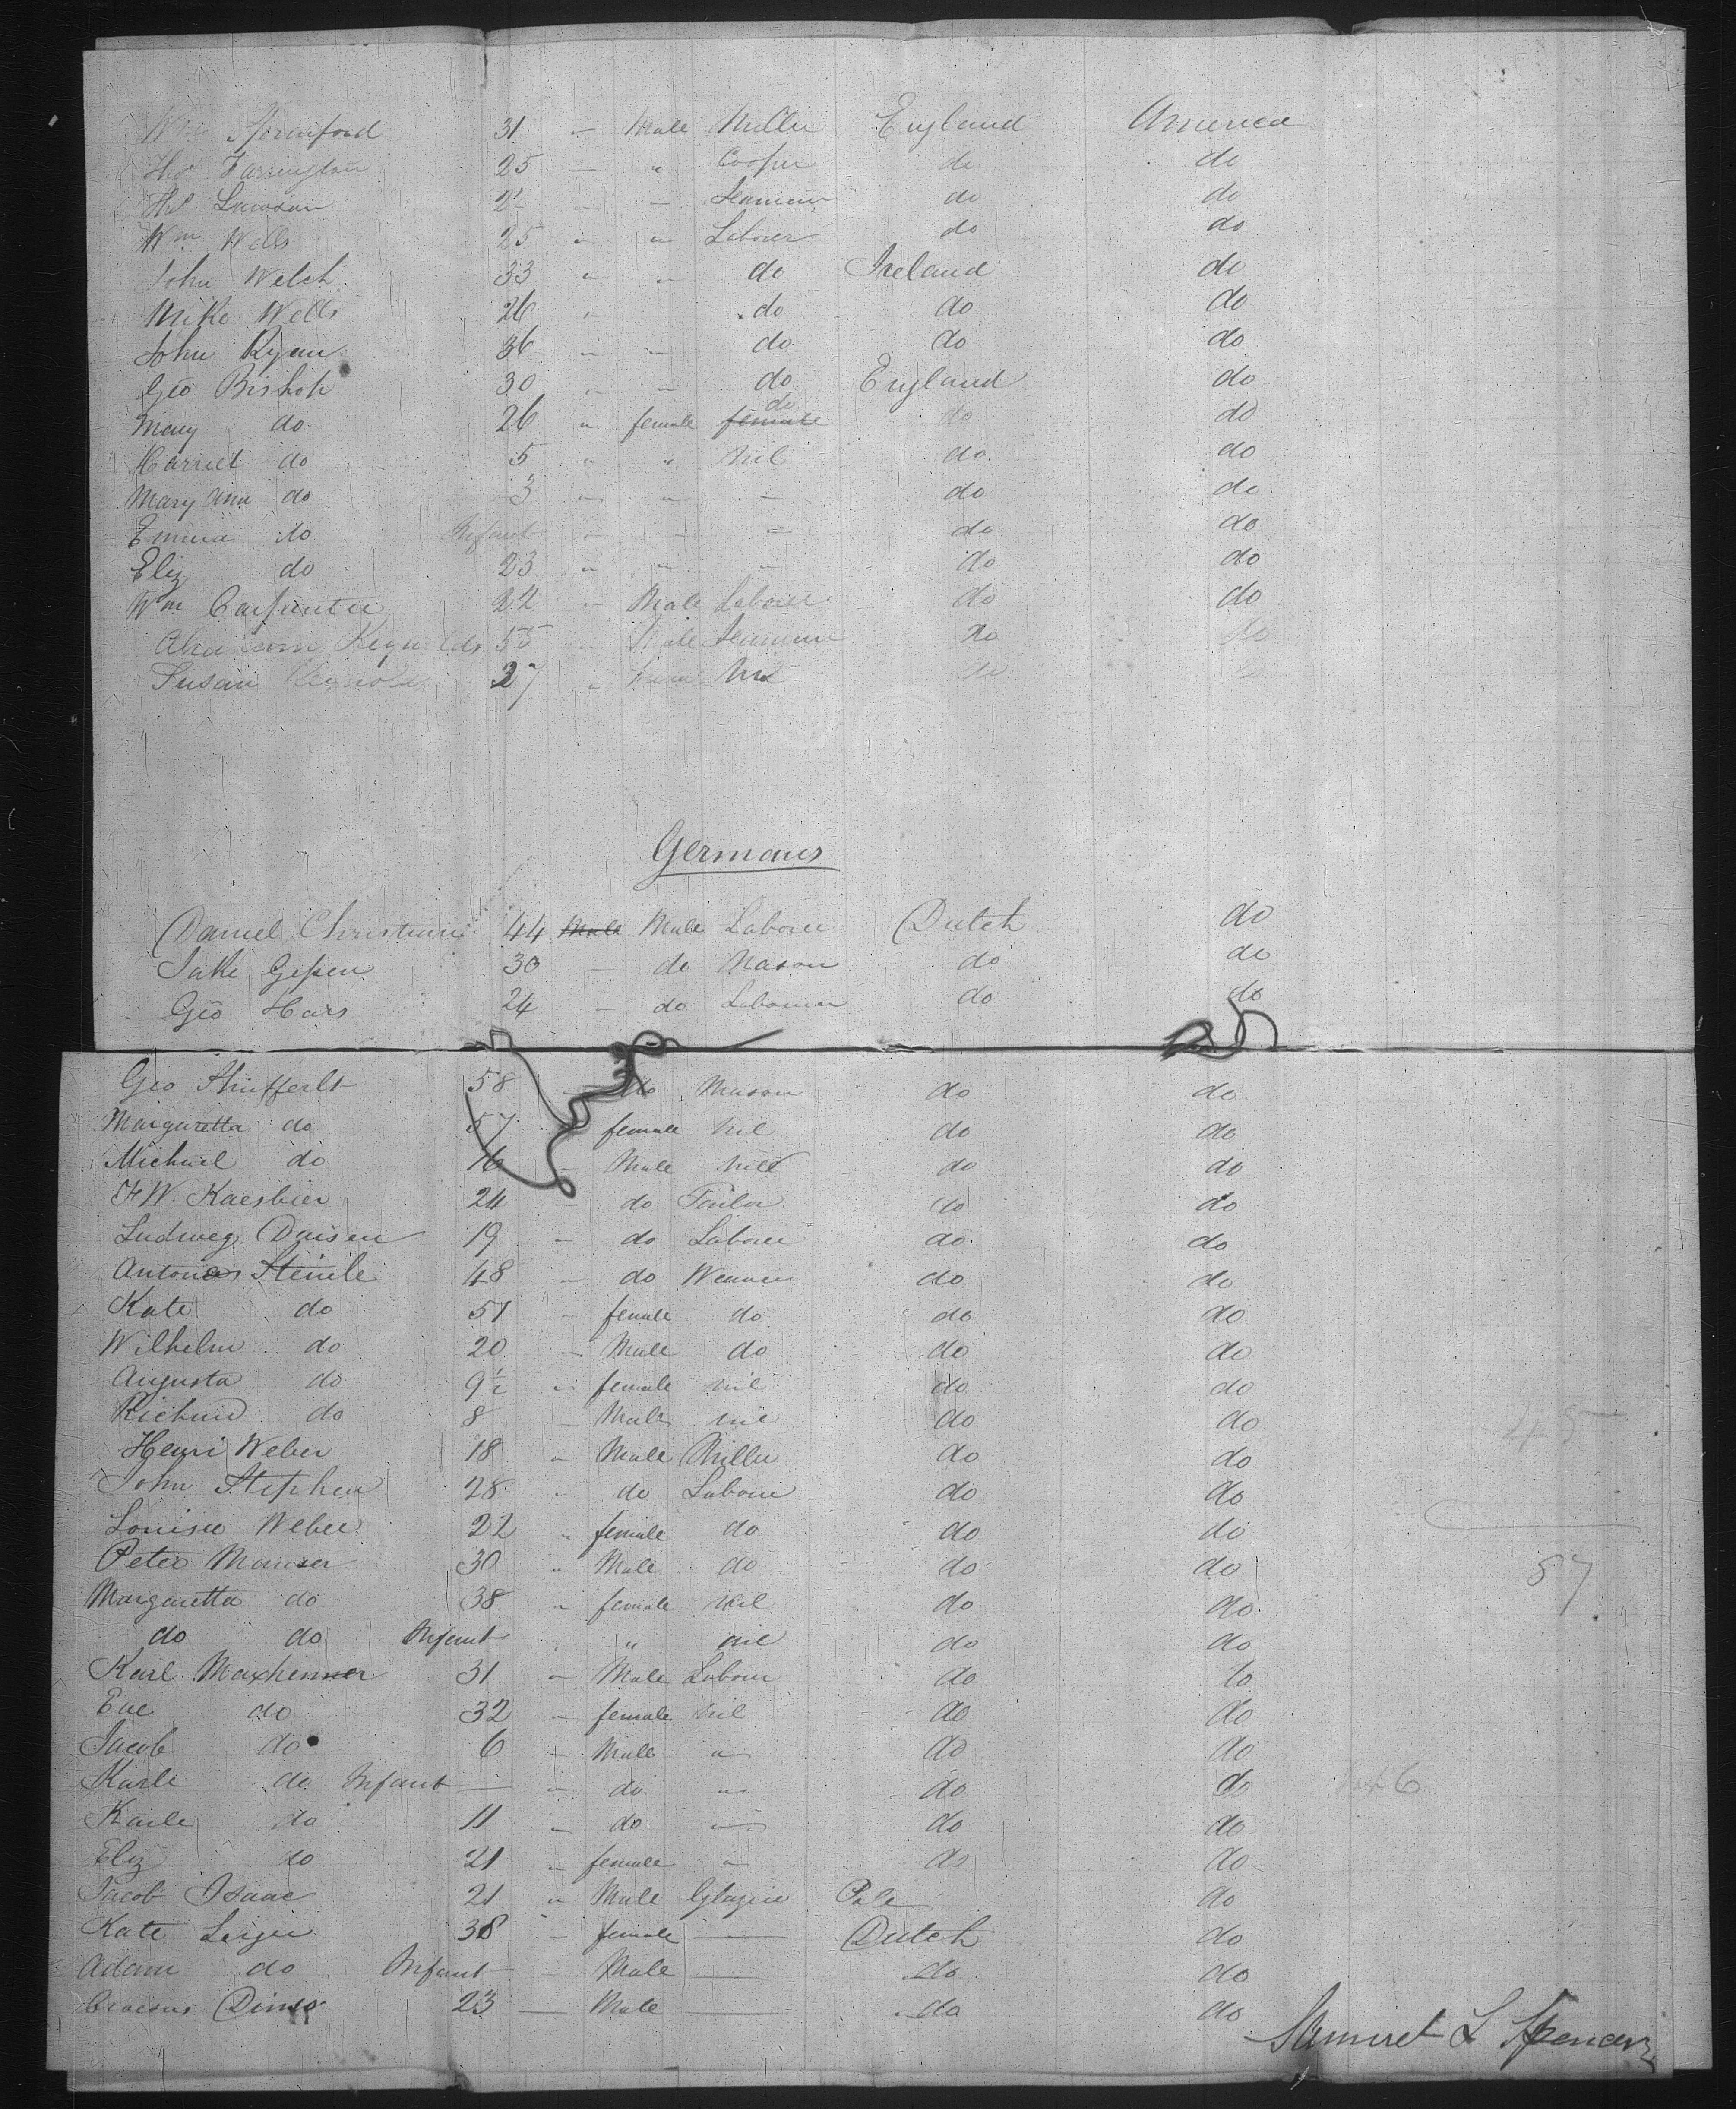 Wm 31 " Male Miller England America
Thos Farrington 25 — " Cooper do do
Thos Lawson — — Seaman do do
Wm Wells 25 " " Laborer do do
John Welch 33 " " do Ireland do
Mike Wells 26 " do do do
John Ryan 36 " — do do do
Geo Bishop 30 " — do England do
Mary do 26 " female female do do do
Harriet do 5 " " Nil do do
Mary Ann do 3 — — — do do
Emma do Infant — — — do do
Eliz do 23 " " — do do
Wm Carpenter 22 — Male Laborer do do
Reynolds 55 " Male Seaman do do
Susan Reynolds 27 " Nil do do
Germans
Daniel Christian 44 Male Male Laborer Dutch do
Jake 30 — do Mason do do
Geo Hars 24 — do Labourer do do
Geo 58 — do Mason do do
Margaretta do 57 female nil do do
Michael do 16 — Male nil do do
24 — do Tailor do do
Ludweg Daisen 19 — do Laborer do do
Antonios 48 — do Weaver do do
Kate do 51 — female do do do
Wilhelm do 20 — Male do do do
Augusta do 9½ " female nil do do
Richard do 8 — Male nil do do
Henri Weber 18 " Male Miller do do
John Stephen 28 — do Laborer do do
Louisa Weber 22 " female do do do
Peter Manser 30 " Male do do do
Margaretta do 38 " female nil do do
do do Infant " " nil do do
Karl 31 " Male Laborer do do
Eve do 32 — female nil do do
Jacob do 6 — Male " do do
Karle do Infant — " do " do do
Karle do 11 — do — do do
Eliz do 21 " female " do do
Jacob Isaac 21 " Male Glazier Pole do
Kate 38 — female — Dutch do
Adam do Infant — Male — do do
23 — Male — do do
87
Samuel L Spencer